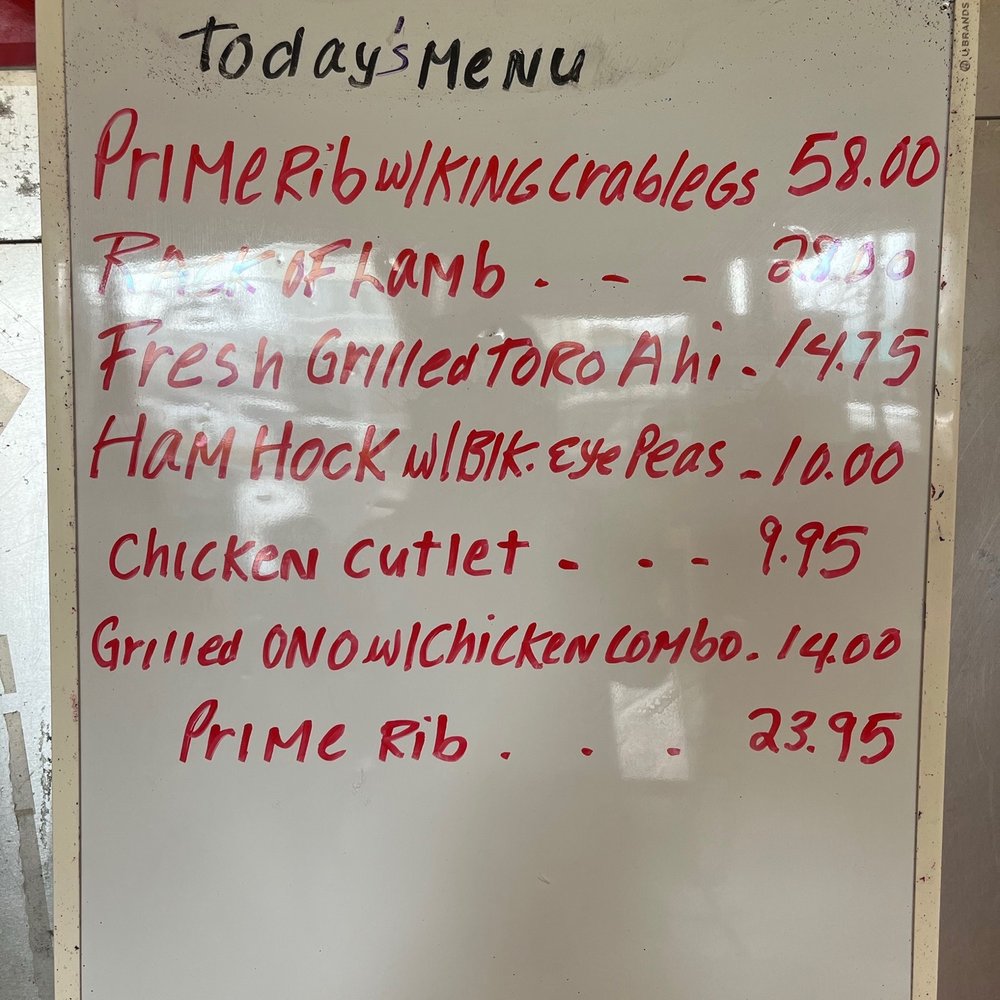 Today's Menu
Prime Rib w/King Crab legs 58.00
Rack of Lamb . - - 28.00
Fresh Grilled Toro Ahi . 14.75
Ham Hock w/Blk. Eye Peas - 10.00
Chicken Cutlet - - - 9.95
Grilled ONO w/Chicken Combo . 14.00
Prime Rib . . . 23.95
U BRANDS